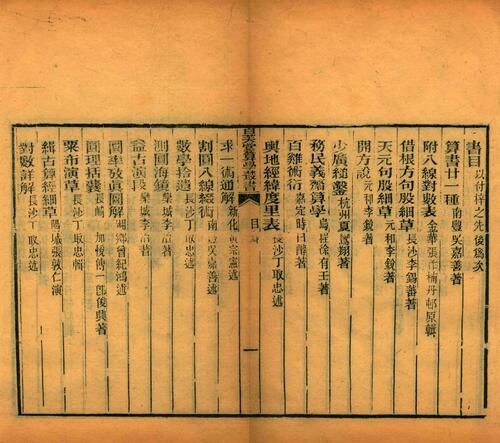 書目 以付梓之先後爲次
算書廿一種 南豐吳嘉善著
附八線對數表 金華張作楠丹邨原輯
借根方句股細草 長沙李錫蕃著
天元句股細草 元和李銳著
開方說 元和李銳著
少廣縋鑿 杭州夏鸞翔著
務民義齋算學 烏程徐有壬著
百雞術衍 嘉定時曰醇著
輿地經緯度里表 長沙丁取忠述
白芙堂算學叢書 目
一
求一術通解 新化黃宗憲述
割圓八線綴術 南豐吳嘉善述
數學拾遺 長沙丁取忠述
測圓海鏡 欒城李冶著
益古演段 欒城李冶著
圓率攷眞圖解 湘鄉曾紀鴻述
圓理括囊 加悅傳一郎俊興著
粟布演草 長沙丁取忠輯
緝古算經細草 陽城張敦仁演
對數詳解 長沙丁取忠述